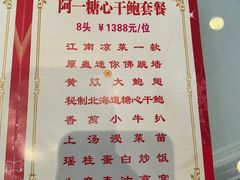 阿一糖心干鲍套餐
8头 ￥1388元/位
江南凉菜一款
原盅迷你佛跳墙
黄炆大鲍翅
秘制北海道糖心干鲍
香煎小牛扒
上汤浸菜苗
瑶柱蛋白炒饭